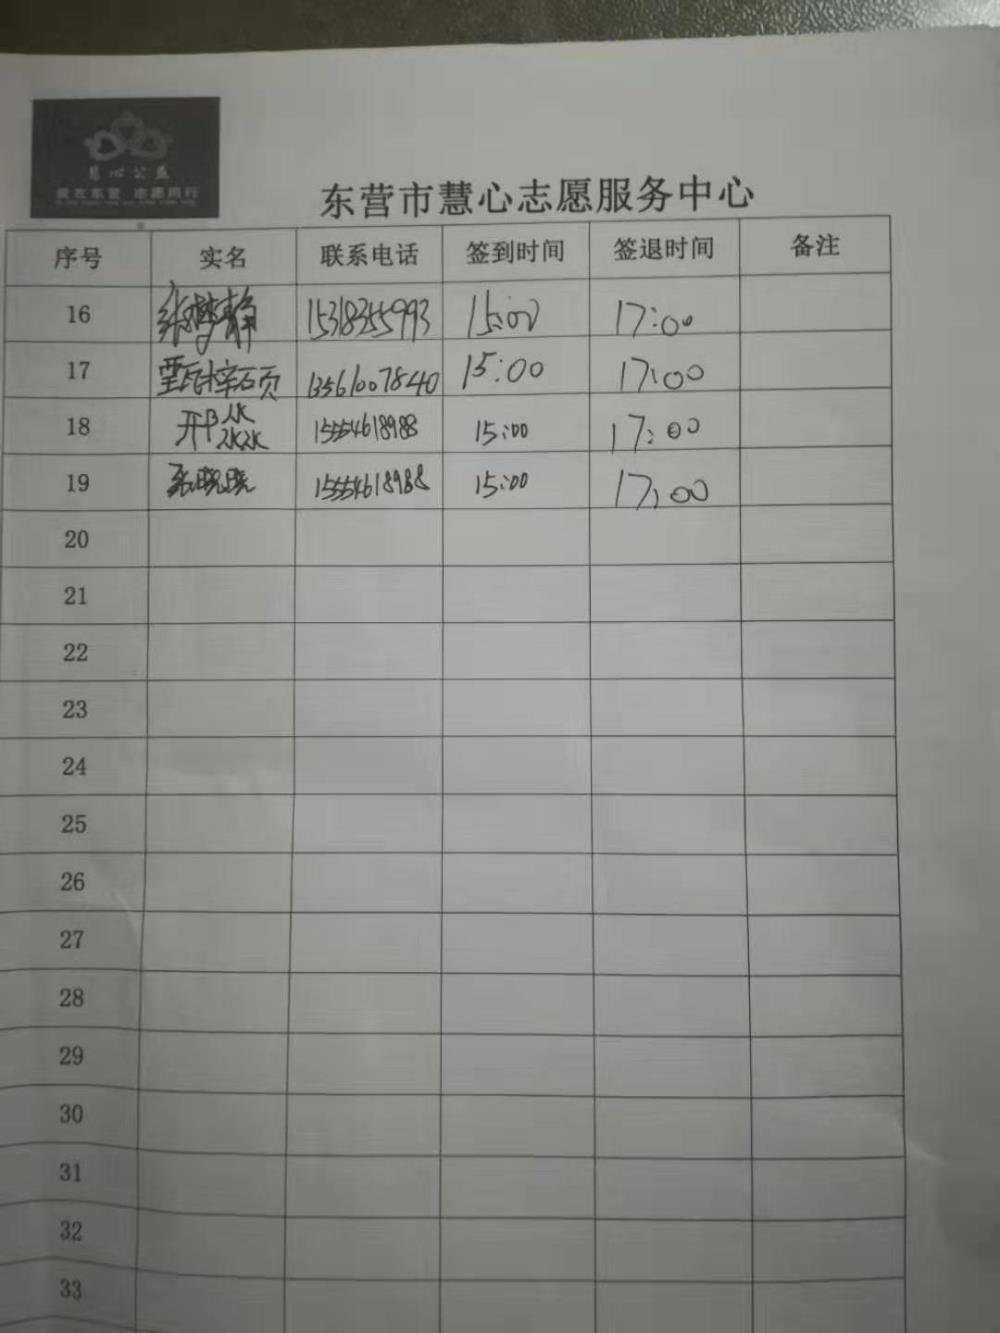 慧心公益
爱在东营 志愿同行
东营市慧心志愿服务中心
序号 实名 联系电话 签到时间 签退时间 备注
16 张梦静 15318355993 15:00 17:00
17 甄梓硕 13561007840 15:00 17:00
18 15554618988 15:00 17:00
19 张晓晓 15554618988 15:00 17:00
20
21
22
23
24
25
26
27
28
29
30
31
32
33